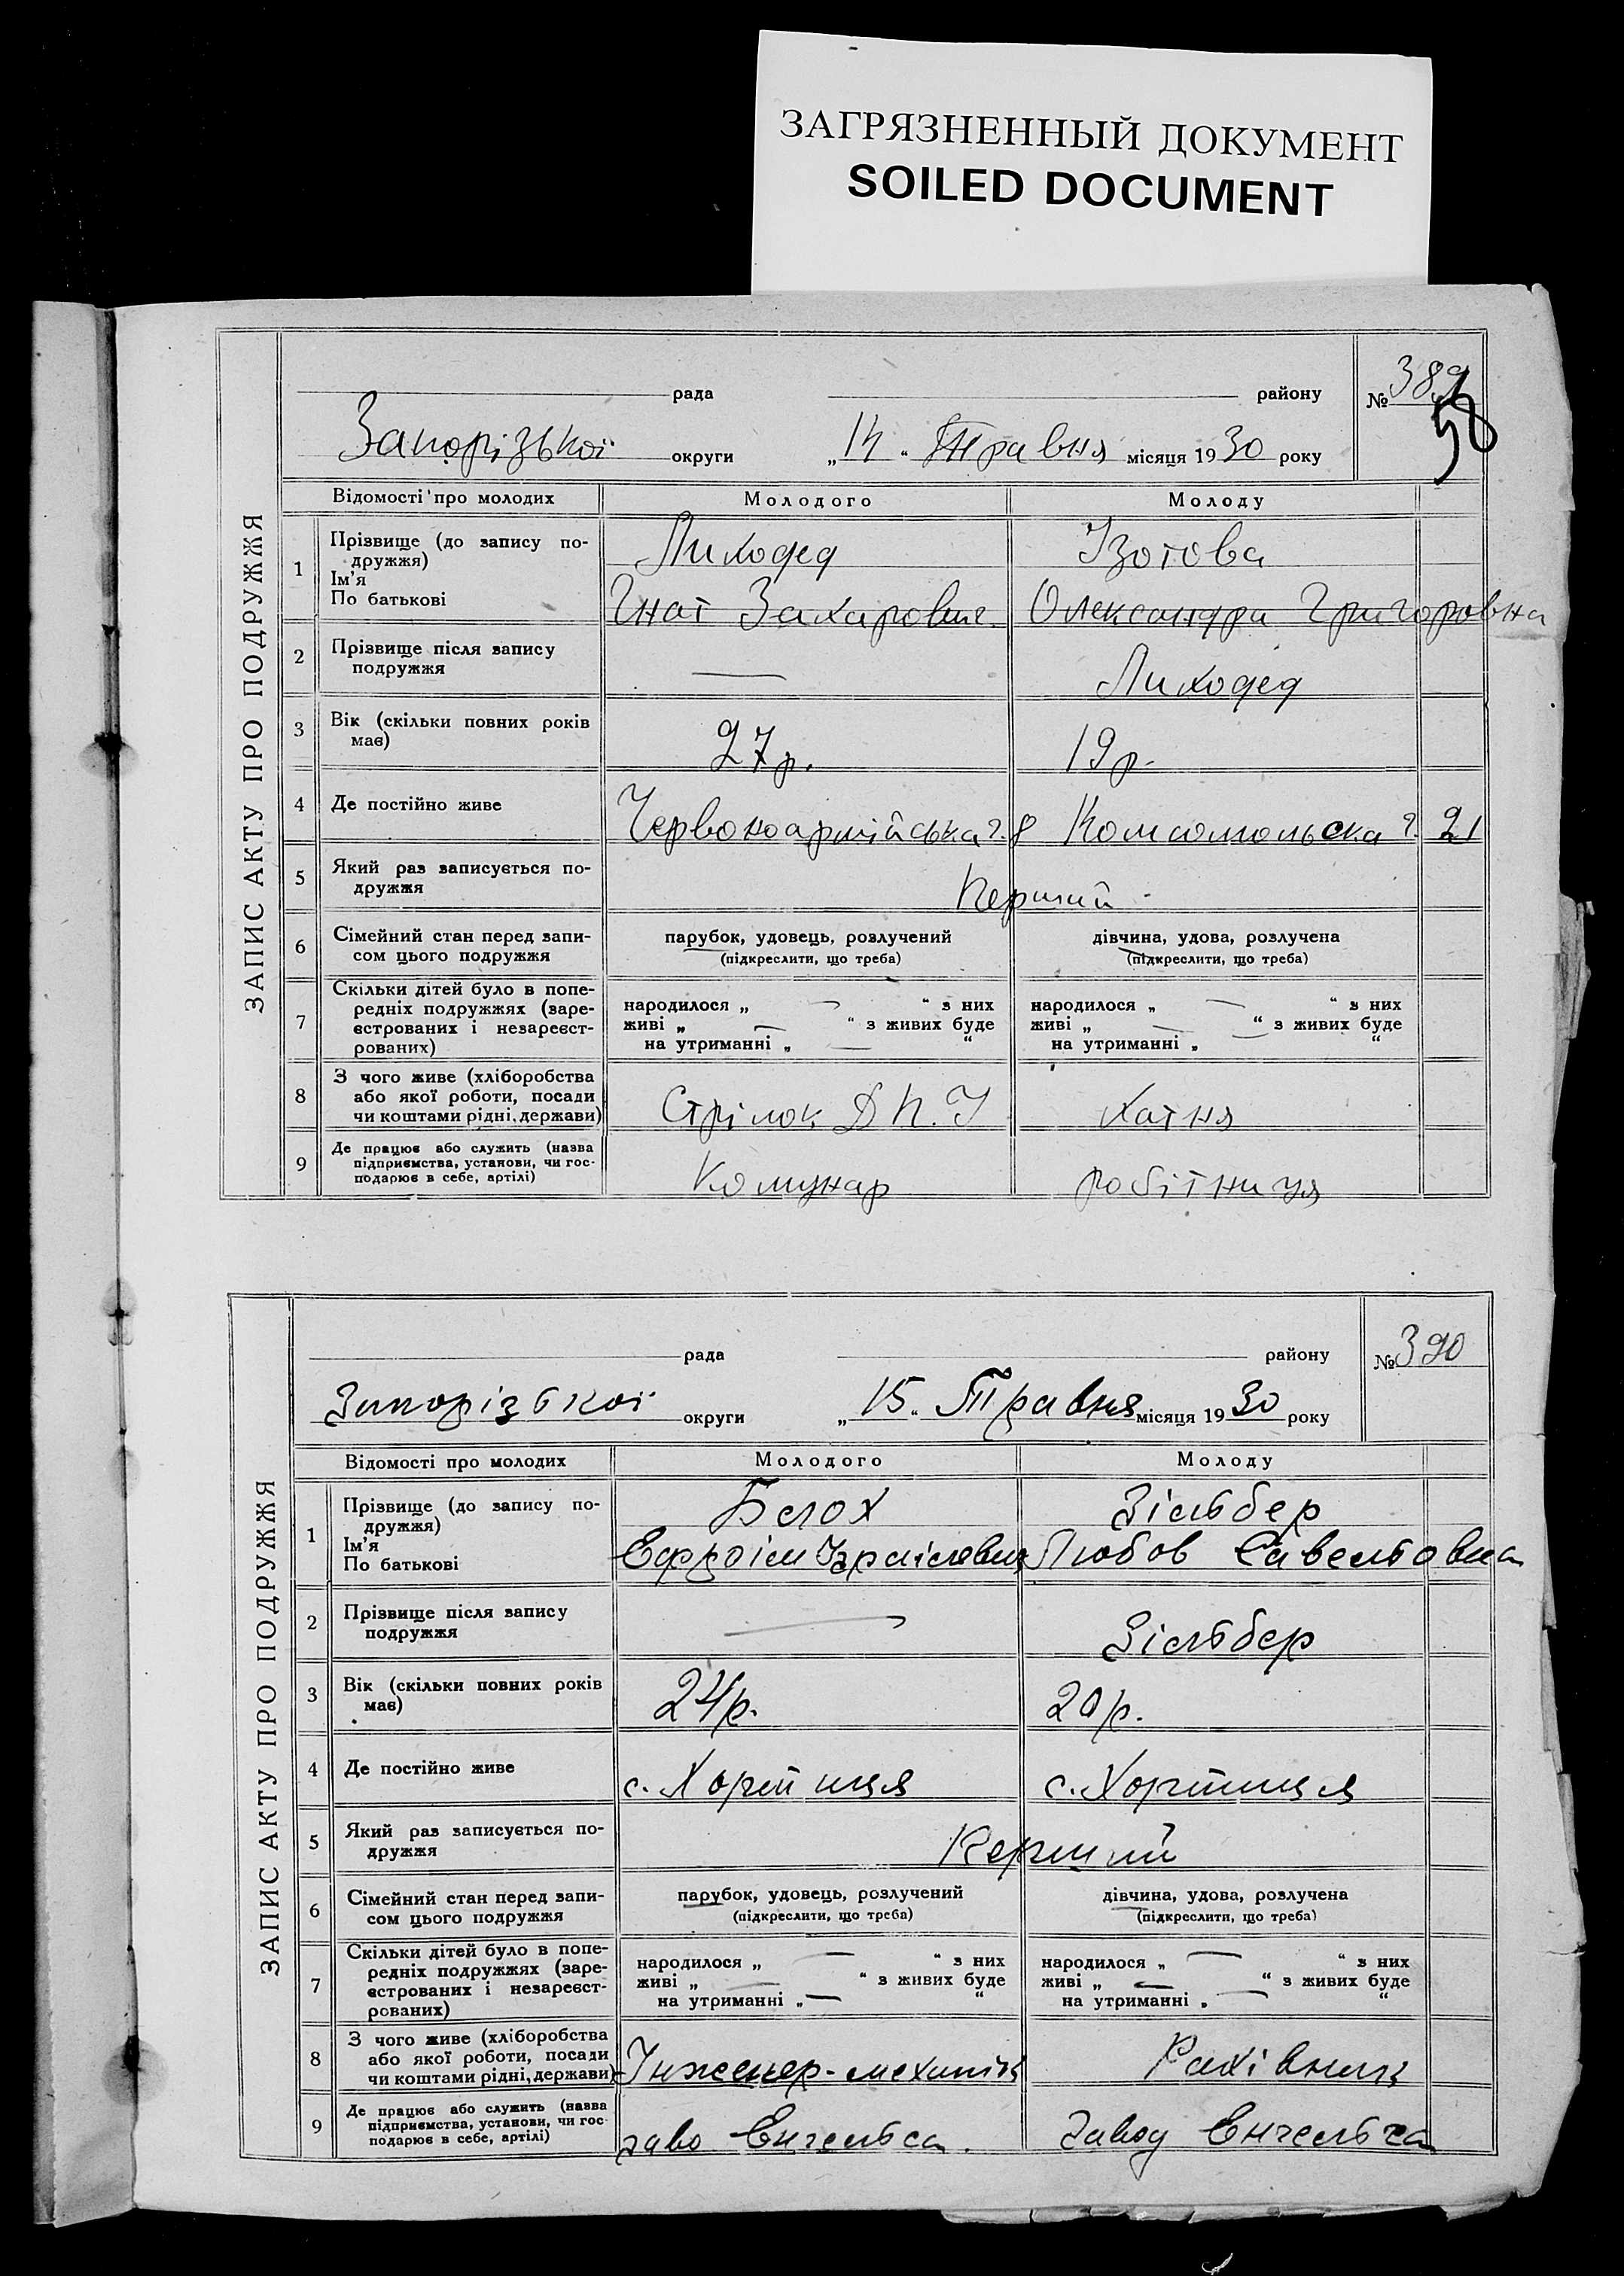 ЗАГРЯЗНЕННЫЙ ДОКУМЕНТ
SOILED DOCUMENT
ЗАПИС АКТУ ПРО ПОДРУЖЖЯ
рада района
району
№ 389
58
Запорізької округи „14“ Травня місяця 1930 року
Відомості про молодих Молодого Молоду
1 Прізвище (до запису по-
дружжя)
Ім'я
По батькові
Лиходед Ізотова
Гнат Захарович. Олександра Григоровна
2 Прізвище після запису
подружжя
— Лиходед
3 Вік (скільки повних років
має)
27 р. 19 р.
4 Де постійно живе Червоноармійська ч. 8 Комсомольска ч. 21
5 Який раз записується по-
дружжя
Перший
6 Сімейний стан перед запи-
сом цього подружжя
парубок, удовець, розлучений дівчина, удова, розлучена
(підкреслити, що треба) (підкреслити, що треба)
7 Скільки дітей було в попе-
редніх подружжях (заре-
єстрованих і незареєст-
рованих)
народилося „ — “ з них народилося „ — “ з них
живі „ — “ з живих буде живі „ — “ з живих буде
на утриманні „ — “ на утриманні „ — “
8 З чого живе (хліборобства
або якої роботи, посади
чи коштами рідні, держави)
Стрілок Д П. У Хатня
9 Де працює або служить (назва
підприємства, установи, чи гос-
подарює в себе, артілі)
Комунар робітниця
ЗАПИС АКТУ ПРО ПОДРУЖЖЯ
рада району
№ 390
Запорізької округи „15“ Травня місяця 1930 року
Відомості про молодих Молодого Молоду
1 Прізвище (до запису по-
дружжя)
Ім'я
По батькові
Блох Зільбер
Ефроім Ізраілевич Любов Савельовна
2 Прізвище після запису
подружжя
— Зільбер
3 Вік (скільки повних років
має)
24 р. 20 р.
4 Де постійно живе с. Хортиця с. Хортиця
5 Який раз записується по-
дружжя
Перший
6 Сімейний стан перед запи-
сом цього подружжя
парубок, удовець, розлучений дівчина, удова, розлучена
(підкреслити, що треба) (підкреслити, що треба)
7 Скільки дітей було в попе-
редніх подружжях (заре-
єстрованих і незареєст-
рованих)
народилося „ — “ з них народилося „ — “ з них
живі „ — “ з живих буде живі „ — “ з живих буде
на утриманні „ — “ на утриманні „ — “
8 З чого живе (хліборобства
або якої роботи, посади
чи коштами рідні, держави)
Інженер-механік Рахівник
9 Де працює або служить (назва
підприємства, установи, чи гос-
подарює в себе, артілі)
заво Енгельса. Завод Енгельса